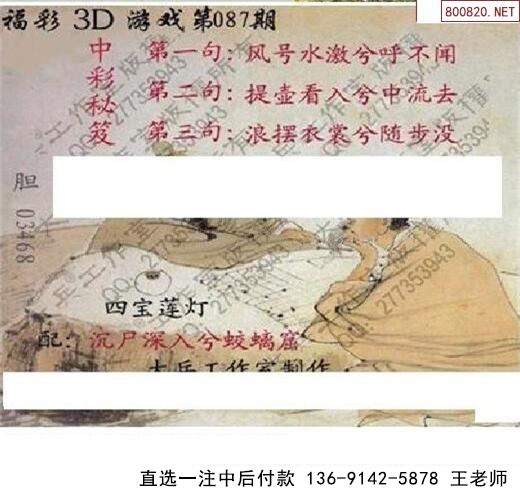 800820.NET
福彩3D游戏第087期
中彩秘笈
第一句：风号水激兮呼不闻
第二句：提壶看入兮中流去
第三句：浪摆衣裳兮随步没
胆 03468
四宝莲灯
配：沉尸深入兮蛟螭窟
士兵工作室制作
QQ:277353943
直选一注中后付款 136-9142-5878 王老师